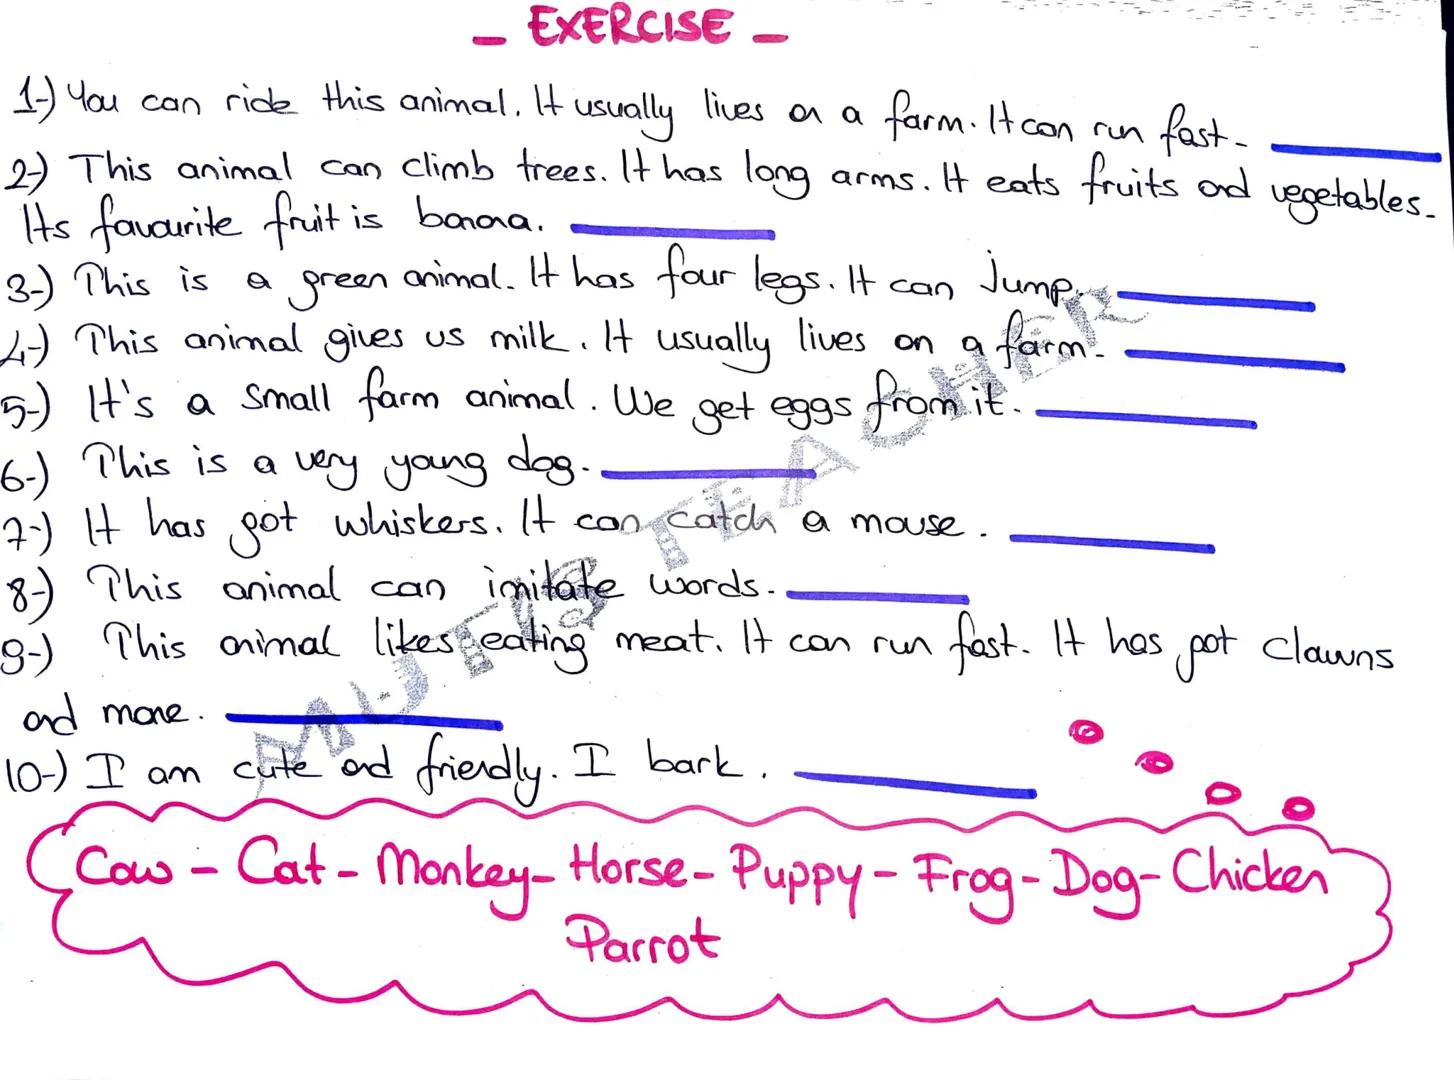 - EXERCISE -
1-) You can ride this animal. It usually lives on a farm. It can run fast.
2-) This animal can climb trees. It has long arms. It eats fruits and vegetables.
Its favourite fruit is banana.
3-) This is a green animal. It has four legs. It can Jump.
4-) This animal gives us milk. It usually lives on a farm.
5-) It's a small farm animal. We get eggs from it.
6-) This is a very young dog.
7-) It has got whiskers. It can catch a mouse.
8-) This animal can imitate words.
9-) This animal likes eating meat. It can run fast. It has got clawns
and mane.
10-) I am cute and friendly. I bark.
Cow - Cat - Monkey - Horse - Puppy - Frog - Dog - Chicken
Parrot
TEACHER